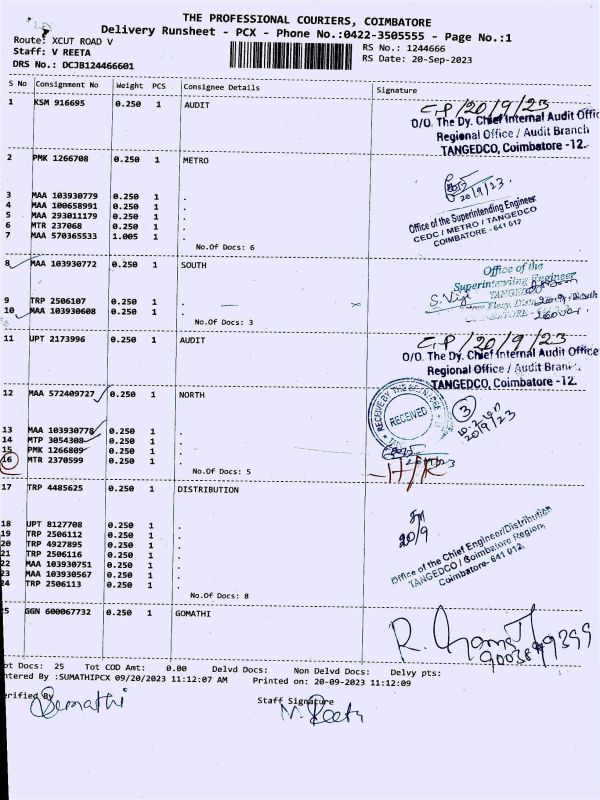 THE PROFESSIONAL COURIERS, COIMBATORE
Delivery Runsheet - PCX - Phone No.:0422-3505555 - Page No.:1
Route: XCUT ROAD V
RS No.: 1244666
Staff: V REETA
RS Date: 20-Sep-2023
DRS No.: DCJB124466601
S No Consignment No Weight PCS Consignee Details Signature
1 KSM 916695 0.250 1 AUDIT
20/9/23
O/O. The Dy. Chief Internal Audit Offic
Regional Office / Audit Branch
TANGEDCO, Coimbatore -12.
2 PMK 1266708 0.250 1 METRO
20/9/23.
3 MAA 103930779 0.250 1 .
4 MAA 100658991 0.250 1 .
5 MAA 293011179 0.250 1 .
6 MTR 237068 0.250 1 .
7 MAA 570365533 1.005 1 .
Office of the Superintending Engineer
CEDC / METRO / TANGEDCO
COIMBATORE - 641 012
No.Of Docs: 6
8 MAA 103930772 0.250 1 SOUTH
Office of the
Superintending Engineer
TANGEDCO
9 TRP 2506107 0.250 1 .
10 MAA 103930608 0.250 1 .
No.Of Docs: 3
11 UPT 2173996 0.250 1 AUDIT
20/9/23
O/O. The Dy. Chief Internal Audit Office
Regional Office / Audit Bran
TANGEDCO, Coimbatore -12.
12 MAA 572409727 0.250 1 NORTH
RECEIVED
3
20/9/23
13 MAA 103930778 0.250 1 .
14 MTP 3054308 0.250 1 .
15 PMK 1266809 0.250 1 .
16 MTR 2370599 0.250 1 .
No.Of Docs: 5
17 TRP 4485625 0.250 1 DISTRIBUTION
20/9
18 UPT 8127708 0.250 1 .
19 TRP 2506112 0.250 1 .
20 TRP 4927895 0.250 1 .
21 TRP 2506116 0.250 1 .
22 MAA 103930751 0.250 1 .
23 MAA 103930567 0.250 1 .
24 TRP 2506113 0.250 1 .
Office of the Chief Engineer/Distribution
TANGEDCO / Coimbatore Region,
Coimbatore- 641 012.
No.Of Docs: 8
25 GGN 600067732 0.250 1 GOMATHI
ot Docs: 25 Tot COD Amt: 0.00 Delvd Docs: Non Delvd Docs: Delvy pts:
ntered By :SUMATHIPCX 09/20/2023 11:12:07 AM Printed on: 20-09-2023 11:12:09
erified By
Staff Signature
V. Reeta